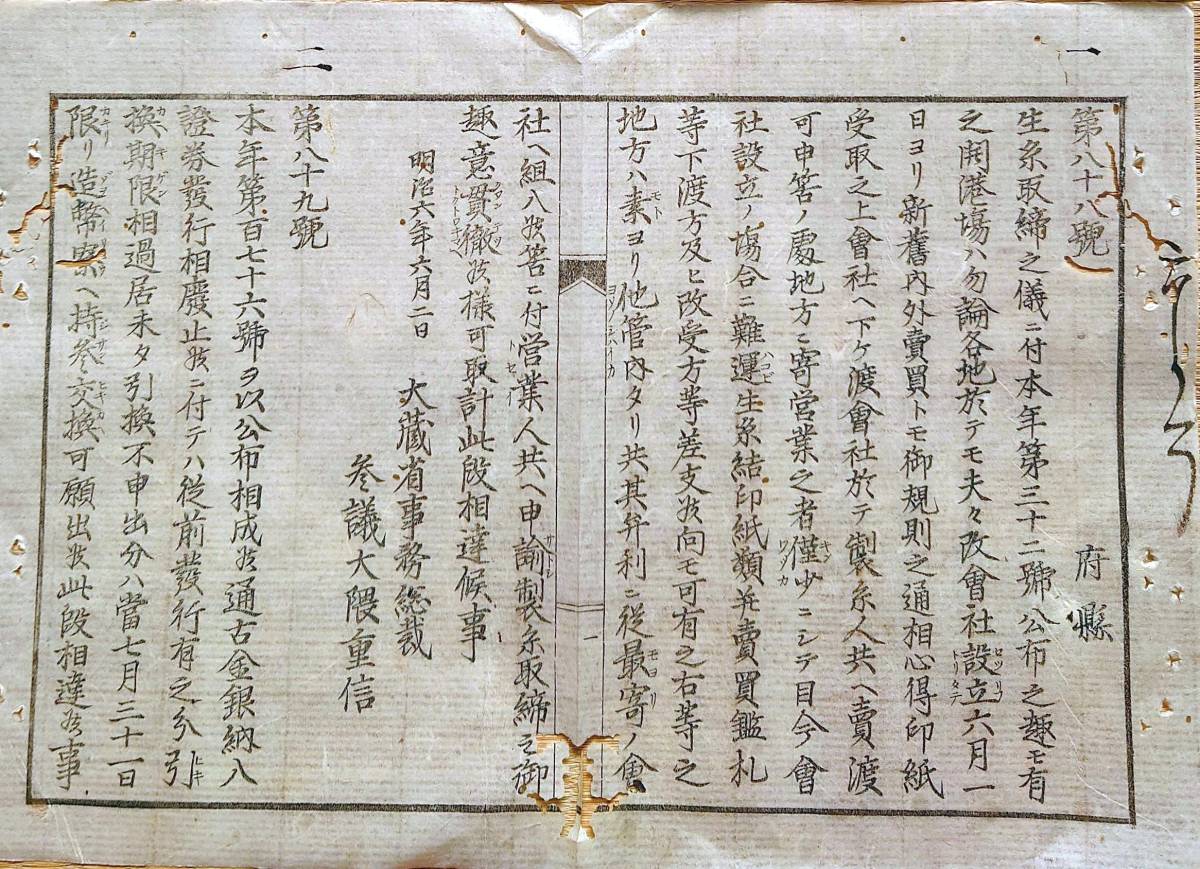 一
第八十八號
府縣
生糸取締之儀ニ付本年第三十二號公布之趣モ有
之開港塲ハ勿論各地於テモ夫々改會社設立六月一
日ヨリ新舊內外賣買トモ御規則之通相心得印紙
受取之上會社ヘ下ケ渡會社於テ製糸人共ヘ賣渡
可申筈ノ處地方ニ寄営業之者僅少ニシテ目今會
社設立ノ塲合ニ難運生糸結印紙類并賣買鑑札
等下渡方及ヒ改受方等差支候向モ可有之右等之
地方ハ素ヨリ他管內タリ共其弁利ニ従最寄ノ會
一
社ヘ組入候筈ニ付営業人共ヘ申諭製糸取締之御
趣意貫徹候様可取計此段相達候事
明治六年六月二日
大藏省事務総裁
参議大隈重信
二
第八十九號
本年第百七十六號ヲ以公布相成候通古金銀納入
證券發行相廢止候ニ付テハ従前發行有之分引
換期限相過居未タ引換不申出分ハ當七月三十一日
限リ造幣寮ヘ持参交換可願出候此段相達候事